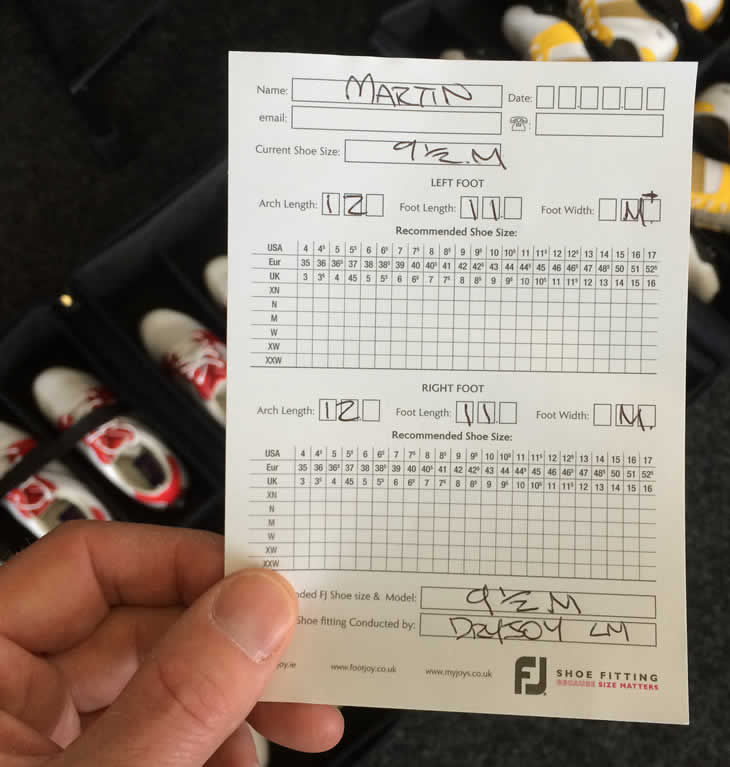 Name: MARTIN Date:
email:
Current Shoe Size: 9 ½ M
LEFT FOOT
Arch Length: 12 Foot Length: 11 Foot Width: M+
Recommended Shoe Size:
USA 4 4⁵ 5 5⁵ 6 6⁵ 7 7⁵ 8 8⁵ 9 9⁵ 10 10⁵ 11 11⁵ 12 12⁵ 13 14 15 16 17
Eur 35 36 36⁵ 37 38 38⁵ 39 40 40⁵ 41 42 42⁵ 43 44 44⁵ 45 46 46⁵ 47 48⁵ 50 51 52⁵
UK 3 3⁵ 4 45 5 5⁵ 6 6⁵ 7 7⁵ 8 8⁵ 9 9⁵ 10 10⁵ 11 11⁵ 12 13 14 15 16
XN
N
M
W
XW
XXW
RIGHT FOOT
Arch Length: 12 Foot Length: 11 Foot Width: M
Recommended Shoe Size:
USA 4 4⁵ 5 5⁵ 6 6⁵ 7 7⁵ 8 8⁵ 9 9⁵ 10 10⁵ 11 11⁵ 12 12⁵ 13 14 15 16 17
Eur 35 36 36⁵ 37 38 38⁵ 39 40 40⁵ 41 42 42⁵ 43 44 44⁵ 45 46 46⁵ 47 48⁵ 50 51 52⁵
UK 3 3⁵ 4 45 5 5⁵ 6 6⁵ 7 7⁵ 8 8⁵ 9 9⁵ 10 10⁵ 11 11⁵ 12 13 14 15 16
XN
N
M
W
XW
XXW
FJ Shoe size & Model: 9 ½ M
Shoe fitting Conducted by: LM
www.footjoy.co.uk www.myjoys.co.uk FJ SHOE FITTING
BECAUSE SIZE MATTERS